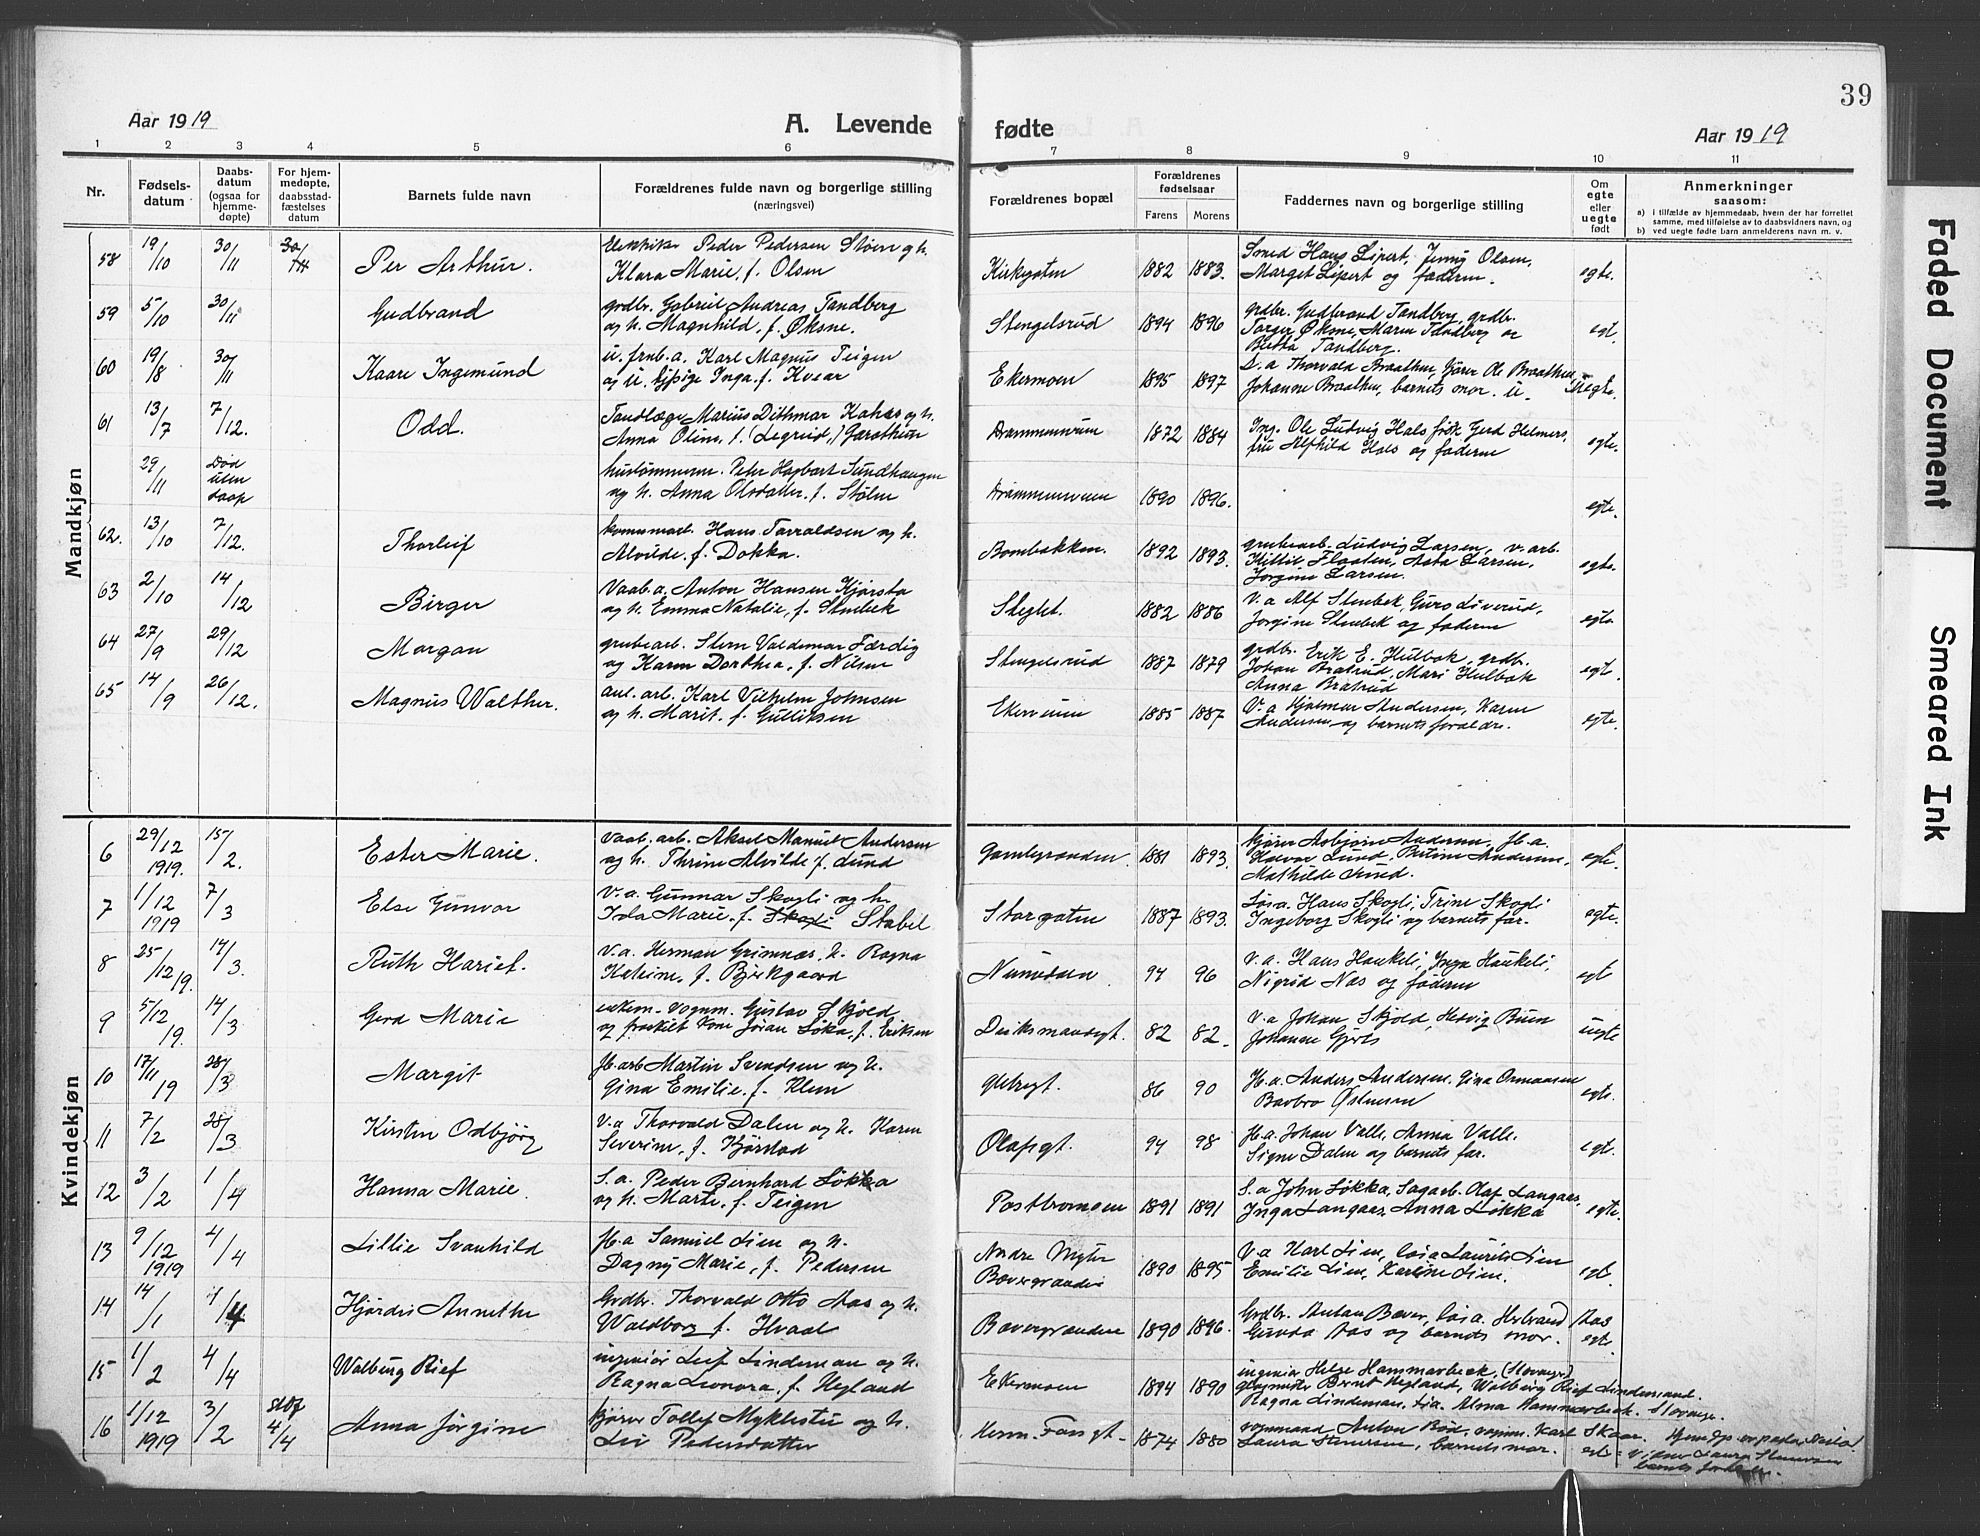 39
Aar 1919
A. Levende
fødte
Aar 1919
1 2 3 4 5 6 7 8 9 10 11
Nr.
Fødsels-
datum
Daabs-
datum
(ogsaa for
hjemme-
døpte)
For hjem-
medøpte,
daabsstad-
fæstelses
datum
Barnets fulde navn
Forældrenes fulde navn og borgerlige stilling
(næringsvei)
Forældrenes bopæl
Forældrenes
fødselsaar
Farens Morens
Faddernes navn og borgerlige stilling
Om
egte
eller
uegte
født
Anmerkninger
saasom:
a) i tilfælde av hjemmedaab, hvem der har forrettet
samme, med tilføielse av to daabsvidners navn, og
b) ved uegte fødte barn anmelderens navn m. v.
Mandkjøn
58 19/10 30/11 30/11 Per Arthur. Elektriker Peder Pedersen Støen og h.
Klara Marie, f. Olsen
Kirkegaten 1882 1883. Smed Hans Lipert, Jenny Olsen,
Marget Lipert og faderen. egte.
59 5/10 30/11 Gudbrand grdbr. Gabriel Andreas Tandberg
og h. Magnhild, f. Øksne.
Stengelsrud 1894 1896 grdbr. Gudbrand Tandberg, grdbr.
Torger Øksne, Maren Tandberg og
Berta Tandberg. egt.
60 19/8 30/11 Kaare Ingemund u. frnb. a. Karl Magnus Teigen
og u. Inga f. Kvear
Ekermoen 1895 1897 S. a Thorvald Braathen, kjører Ole Braathen
Johanne Braathen, barnets mor. u. Uegte.
61 13/7 7/12. Odd. Tandlæge Marius Dithmar Kahrs og h.
Anna Oline, f. (Legreid,) Garathun
Drammenveien 1872 1884 Ing. Ole Ludvig Hals frøk Gerd Helmers,
fru Alfhild Hals og faderen egte.
29/11 Død
uten
daap
Peter Hagbart Sundhaugen
og h. Anna Olsdatter, f. Stølen
Drammenveien 1890 1896. egte.
62. 13/10 7/12. Thorleif kommarb. Hans Tarraldsen og h.
Alvilde, f. Dokka.
Bombakken. 1892 1893. grubearb. Ludvig Larsen, v. arb.
Kittil Flaaten, Asta Larsen,
Jorgine Larsen. egte.
63 2/10 14/12 Birger Vaab. a. Anton Hansen Kjørsta
og h. Emma Natalie, f. Stenbek
Steglet. 1882 1886 V. a Alf Stenbek, Guro Liverud,
Jorgine Stenbek og faderen egte
64 27/9 29/12 Morgan grubearb. Sten Valdemar Færdig
og Karen Dorthea, f. Nilsen
Stengelsrud 1887 1879 grdbr. Erik E. Hulbak, grdbr.
Johan Bratrud, Mari Hulbak
Anna Bratrud egte.
65 14/9 26/12. Magnus Walther. anl. arb. Karl Vilhelm Johnsen
og h. Marit, f. Gulliksen
Ekerveien 1885 1887 V. a Hjalmar Andersen, Karen
Andersen og barnets foraldre. egte.
Kvindekjøn
6 29/12 1919. 15/2. Ester Marie. vaab. arb. Aksel Manuel Andersen
og h. Thrine Alvilde f. Lund
Gamlegrænden 1881 1893. kjører Asbjørn Andersen, Jb. a.
Havar Lund, Betine Andersen,
Mathilde Lund. egte.
7 1/12 1919 7/3 Else Gunvor V. a. Gunnar Skogli og h.
Isla Marie, f. Skogli Stabel
Storgaten 1887 1893. Løsa. Hans Skogli, Trine Skogli
Ingeborg Skogli og barnets far. egte.
8 25/12 19. 14/3. Ruth Hariet. V. a. Herman Grimnæs, h. Ragna
Katrine, f. Bjerkgaard
Numedalen 94 96 V. a. Hans Haukeli, Inga Haukeli,
Sigrid Næs og faderen egt
9 5/12 19. 14/3 Gerd Marie Gustav Skjold
og fraskilt Kone Jøran Løka, f. Eriksen
Dviksmandsgt. 82 82. V. a Johan Skjold, Hedvig Buen
Johanne Gjerts uegte
10 17/11 19 28/3 Margit Jb. arb Martin Svendsen og h.
Gina Emilie, f. Klem
Glitregt. 86 90 Jb. a. Anders Andersen, Gina Ormaasen
Barbro Østensen egte.
11 7/2 28/3 Kirsten Odbjørg V. a Thorvald Dalen og h. Karen
Severine, f. Kjørstad
Olafsgt. 94 98 Jb. a. Johan Valle, Anna Valle,
Signe Dalen og barnets far. egt.
12 3/2 1/4 Hanna Marie. S. a. Peder Bernhard Løkka
og h. Marte, f. Teigen
Postbromoen 1891 1891 S. a John Løkka, Sagarb. Olaf Langaas,
Inga Langaas, Anna Løkka egte.
13 9/12 1919 4/4 Lillie Svanhild Jb. a Samuel Lien og h.
Dagny Marie, f. Pedersen
Nordre
Bævergrænden 1890 1895 V. a Karl Lien, løsa Laurits Lien
Emilie Lien, Karline Lien. egt.
14 14/1 4/4 Hjørdis Annethe Grdbr. Thorvald Otto Aas og h.
Waldborg f. Hvaal
Bævergrænden 1890 1896. Grdbr. Anton Bæver, løsa. Herbrand Aas
Gunda Aas og barnets mor. egt.
15 1/2 4/4 Walburg Rief ingeniør Leif Lindeman og h.
Ragna Leonora, f. Heyland
Ekermoen 1894 1890 ingeniør Helge Hammarbeck, (Stovange)
Bernt Heyland, Walburg Rief Lindemand.
Ragna Lindeman, fra. Alma Hammarbeck. Stovange.
16 1/12 1919 3/2 stdf 4/4 Anna Jørgine kjører Tollef Myklestu og h.
Liv Pedersdatter
Herm. Fossgt. 1874 1880 vognmand Anton Bød, vognm. Karl Skaar.
Laura Stenersen, barnets mor. egte
Faded Document
Smeared Ink